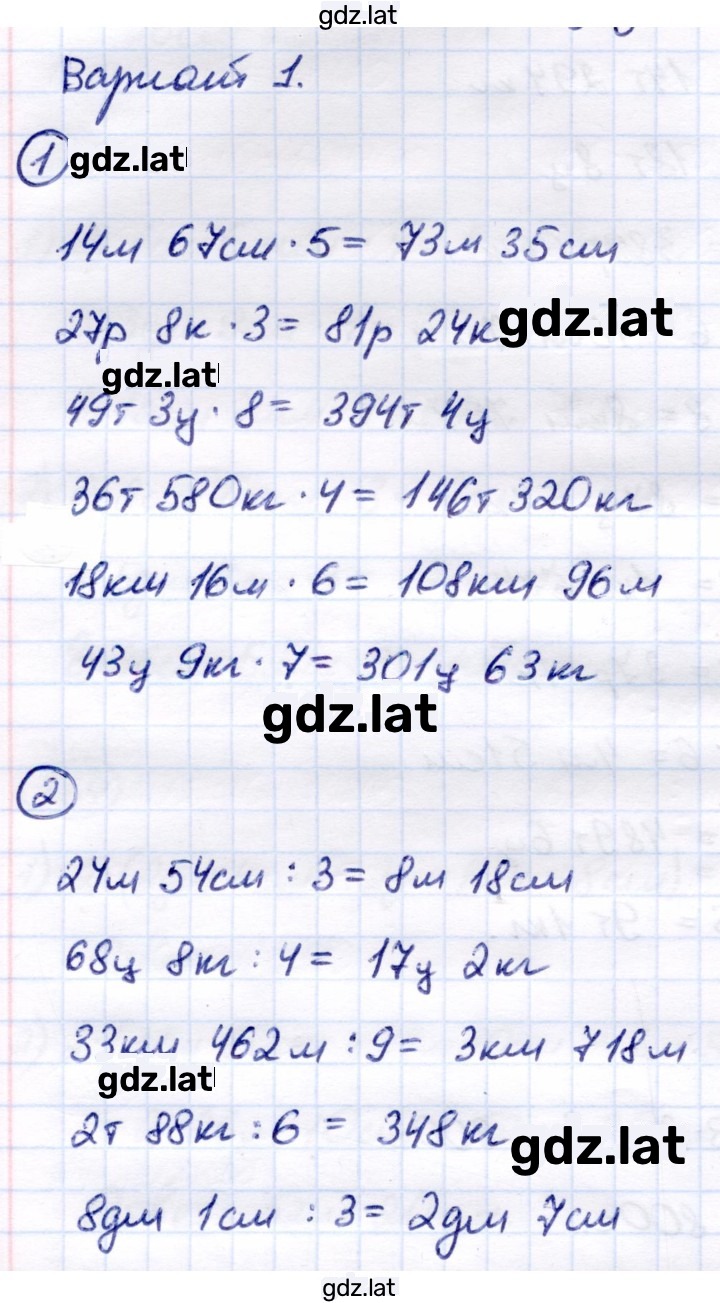 gdz.lat
Вариант 1.
1 gdz.lat
14м 67см · 5 = 73м 35см
27р 8к · 3 = 81р 24к gdz.lat
gdz.lat
49т 3ц · 8 = 394т 4ц
36т 580кг · 4 = 146т 320кг
18км 16м · 6 = 108км 96м
43ц 9кг · 7 = 301ц 63кг
gdz.lat
2
24м 54см : 3 = 8м 18см
68ц 8кг : 4 = 17ц 2кг
33км 462м : 9 = 3км 718м
gdz.lat
2т 88кг : 6 = 348кг gdz.lat
8дм 1см : 3 = 2дм 7см
gdz.lat